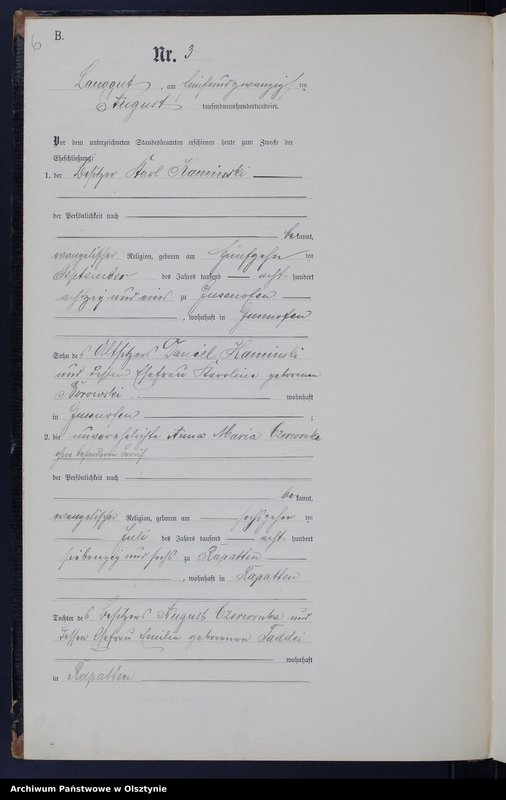 6
B.
Nr. 3
Langgut, am fünfundzwanzig ten
August tausendneunhundertundvier.
Vor dem unterzeichneten Standesbeamten erschienen heute zum Zwecke der
Eheschließung:
1. der Besitzer Karl Kaminski
der Persönlichkeit nach
bekannt,
evangelischer Religion, geboren am fünfzehn ten
September des Jahres tausend acht hundert
achtzig und eins zu Jusenofen
, wohnhaft in Jusenofen
Sohn des Altsitzers Daniel Kaminski
und dessen Ehefrau Karoline geborenen
v. Borowski wohnhaft
in Jusenofen ;
2. die unverehelichte Anna Maria Czerwonka
ohne besonderen Beruf
der Persönlichkeit nach
bekannt,
evangelischer Religion, geboren am sechszehn ten
Juli des Jahres tausend acht hundert
siebenzig und sechs zu Rapatten
, wohnhaft in Rapatten
Tochter des Besitzers August Czerwonka und
dessen Ehefrau Emilie geborenen Taddei
wohnhaft
in Rapatten
Archiwum Państwowe w Olsztynie